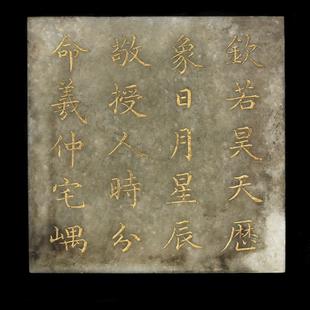 欽若昊天厯
象日月星辰
敬授人時分
命羲仲宅嵎